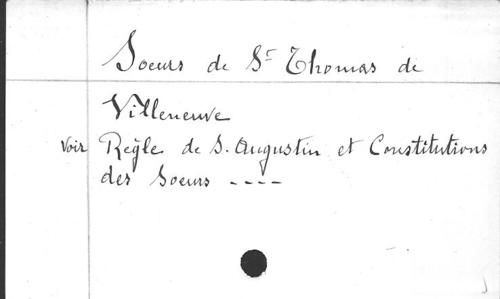 Soeurs de St Thomas de
Villeneuve
Voir Règle de S. Augustin et Constitutions
des Soeurs ----